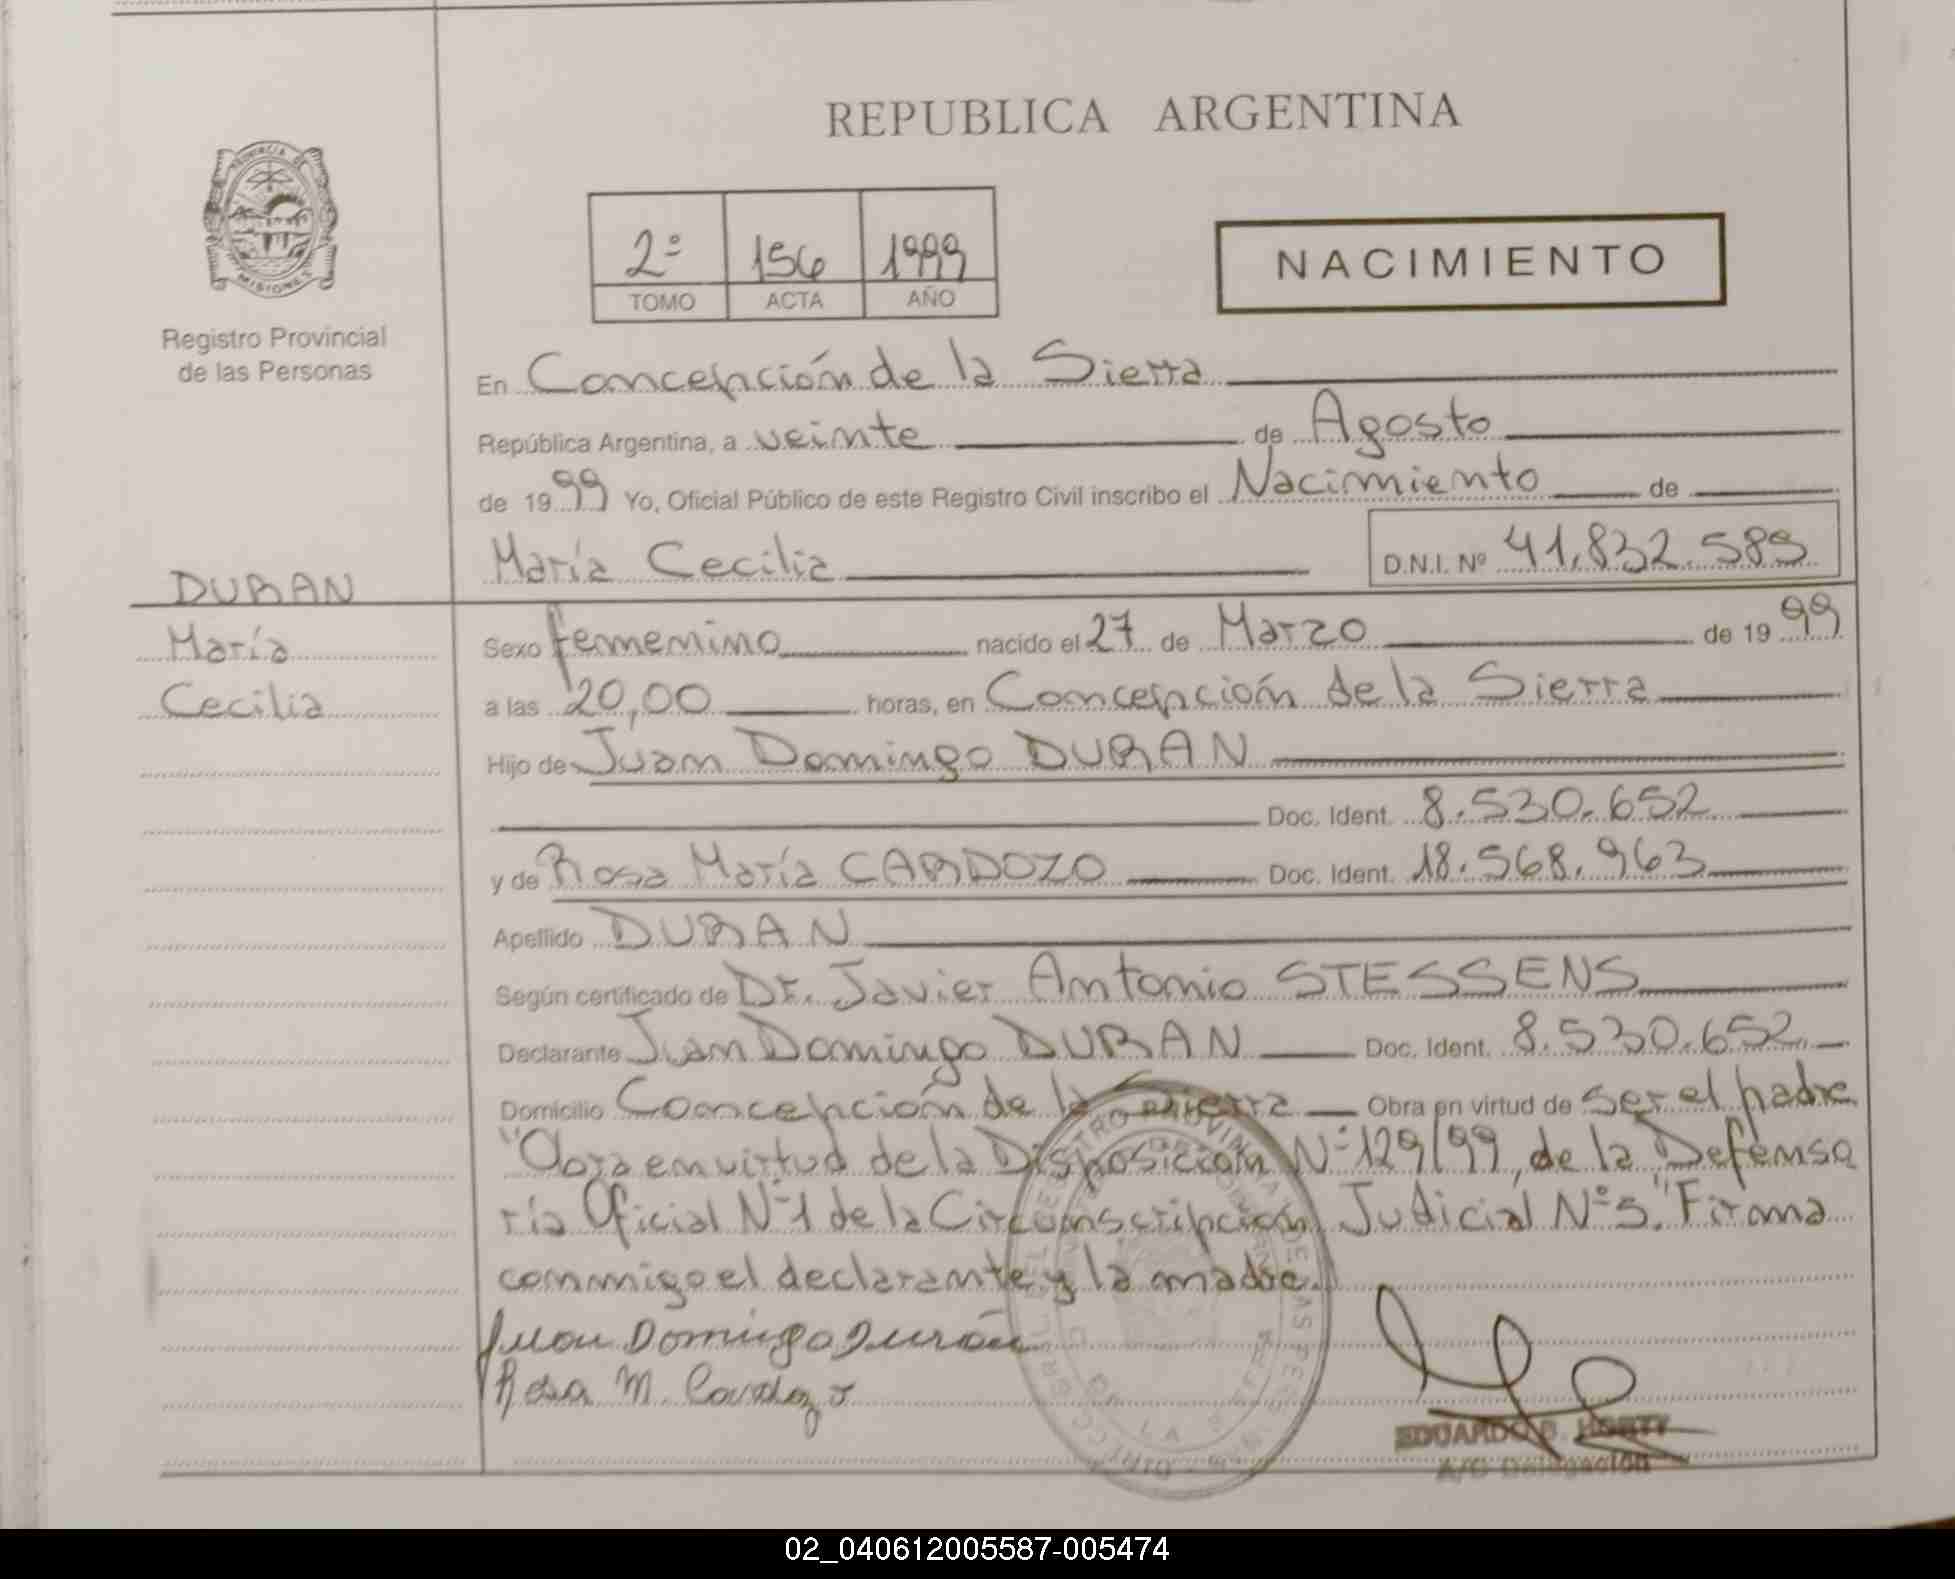 REPUBLICA ARGENTINA
PROVINCIA DE MISIONES
Registro Provincial
de las Personas
2º 156 1999
TOMO ACTA AÑO
NACIMIENTO
En Concepción de la Sierra
República Argentina, a veinte de Agosto
de 1999 Yo, Oficial Público de este Registro Civil inscribo el Nacimiento de
María Cecilia D.N.I. Nº 41.832.589
DURAN
María
Cecilia
Sexo femenino nacido el 27 de Marzo de 1999
a las 20,00 horas, en Concepción de la Sierra
Hijo de Juan Domingo DURAN
Doc. Ident. 8.530.652
y de Rosa María CARDOZO Doc. Ident. 18.568.963
Apellido DURAN
Según certificado de Dr. Javier Antonio STESSENS
Declarante Juan Domingo DURAN Doc. Ident. 8.530.652
Domicilio Concepción de la Sierra Obra en virtud de ser el padre
"Obra en virtud de la Disposición Nº 129/99, de la Defenso
ría Oficial Nº 1 de la Circunscripción Judicial Nº 5." Firma
conmigo el declarante y la madre.
Juan Domingo Durán
Rosa M. Cardozo
EDUARDO
A/C Delegación
02_040612005587-005474